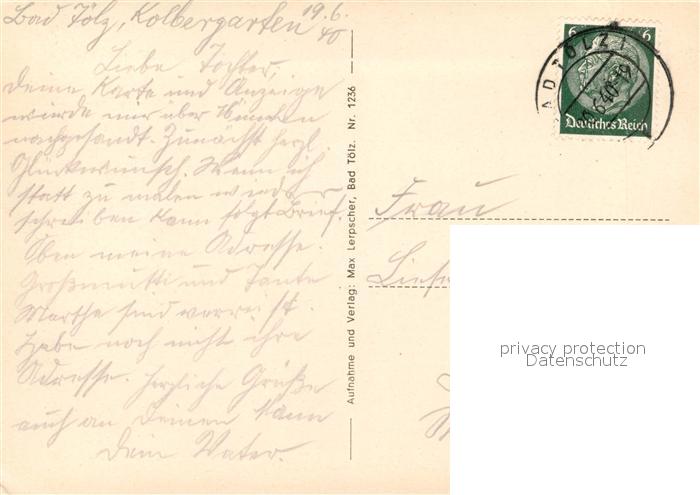 Bad Tölz, Kolbergarten 19.6.
40
Liebe Tochter,
Deine Karte und Anzeige
wurde mir über München
nachgesandt. Zunächst herzl.
Glückwunsch. Wenn ich
statt zu malen wieder
schreiben kann folgt Brief.
Oben meine Adresse.
Großmutti und Tante
Marthe sind verreist.
Habe noch nicht ihre
Adresse. Herzliche Grüße
auch an Deinen Mann
Dein Vater.
Aufnahme und Verlag: Max Lerpscher, Bad Tölz. Nr. 1236
6 6
Deutsches Reich
BAD TÖLZ 1
Frau
privacy protection
Datenschutz